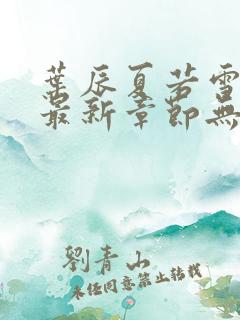 葉辰夏若雪
最新章節無
劉青山
未经同意禁止转载